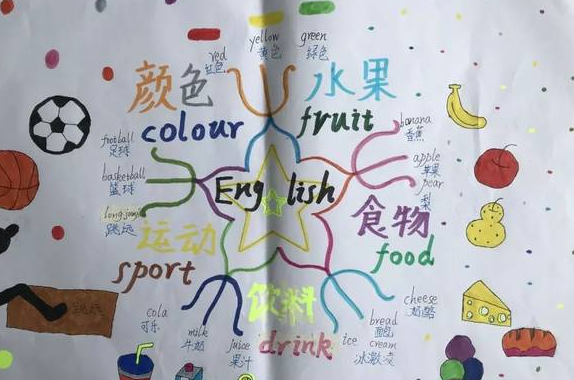 yellow
黄色
green
绿色
red
红色
颜色
colour
水果
fruit
banana
香蕉
apple
苹果
pear
梨
football
足球
basketball
篮球
long jump
跳远
English
运动
sport
食物
food
cheese
奶酪
bread
面包
ice cream
冰激凌
饮料
drink
cola
可乐
milk
牛奶
juice
果汁